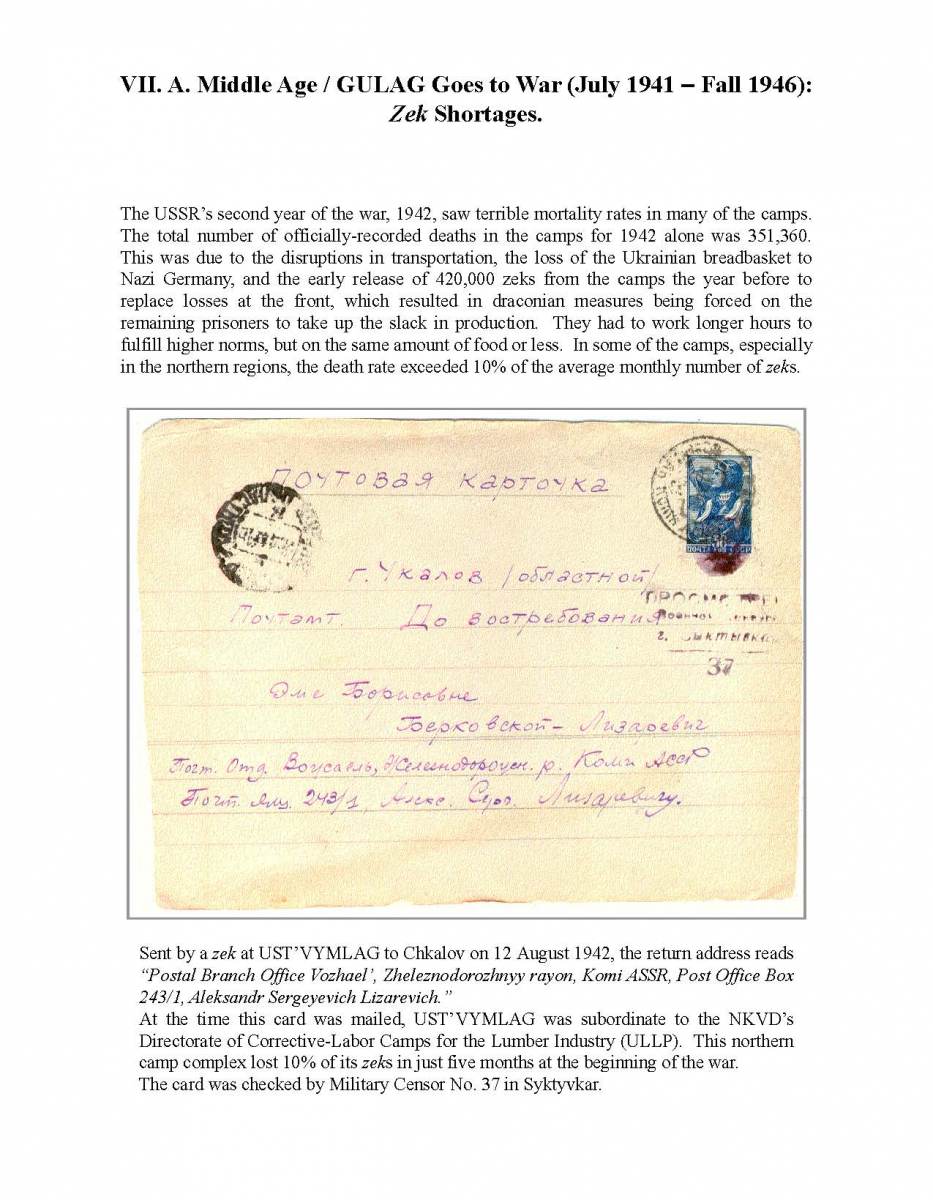 VII. A. Middle Age / GULAG Goes to War (July 1941 – Fall 1946):
Zek Shortages.
The USSR's second year of the war, 1942, saw terrible mortality rates in many of the camps.
The total number of officially-recorded deaths in the camps for 1942 alone was 351,360.
This was due to the disruptions in transportation, the loss of the Ukrainian breadbasket to
Nazi Germany, and the early release of 420,000 zeks from the camps the year before to
replace losses at the front, which resulted in draconian measures being forced on the
remaining prisoners to take up the slack in production. They had to work longer hours to
fulfill higher norms, but on the same amount of food or less. In some of the camps, especially
in the northern regions, the death rate exceeded 10% of the average monthly number of zeks.
Почтовая карточка
г. Чкалов /областной/
Почтамт. До востребования
Борисовне
Берковской - Лизаревич
Почт. Отд. Вожаель, Железнодорожн. р. Коми АССР
Почт. ящ. 243/1, Алекс. Лизаревичу.
ПОЧТА СССР
37
Sent by a zek at UST'VYMLAG to Chkalov on 12 August 1942, the return address reads
“Postal Branch Office Vozhael', Zheleznodorozhnyy rayon, Komi ASSR, Post Office Box
243/1, Aleksandr Sergeyevich Lizarevich.”
At the time this card was mailed, UST'VYMLAG was subordinate to the NKVD's
Directorate of Corrective-Labor Camps for the Lumber Industry (ULLP). This northern
camp complex lost 10% of its zeks in just five months at the beginning of the war.
The card was checked by Military Censor No. 37 in Syktyvkar.